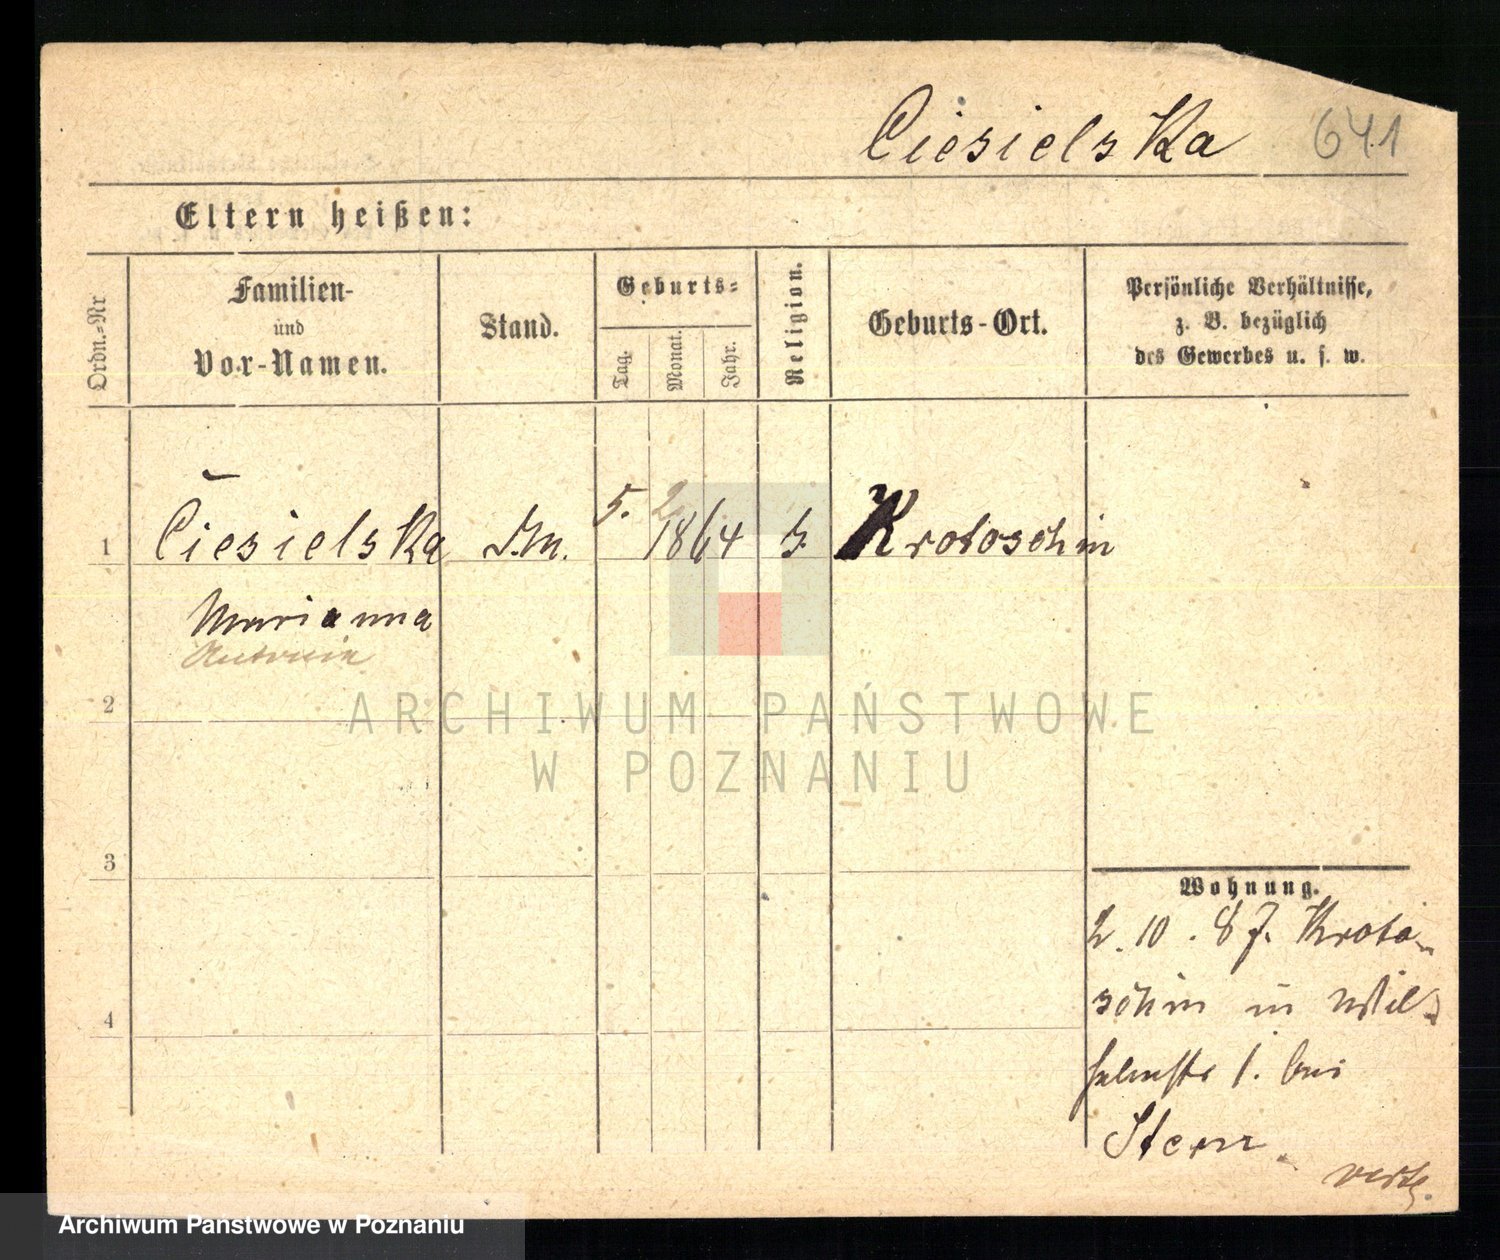 Ciesielska 641
Eltern heißen:
Ordn.=Nr
Familien-
und
Vor-Namen.
Stand.
Geburts=
Tag.
Monat.
Jahr.
Religion.
Geburts-Ort.
Persönliche Verhältnisse,
z. B. bezüglich
des Gewerbes u. s. w.
1 Ciesielska 5. 2 1864 Krotoschin
Marianna
Antonia
2
3
4
Wohnung.
2. 10. 87. Kroto-
schin in Wil-
helmstr 1. bei
Stern
ARCHIWUM PAŃSTWOWE
W POZNANIU
Archiwum Państwowe w Poznaniu